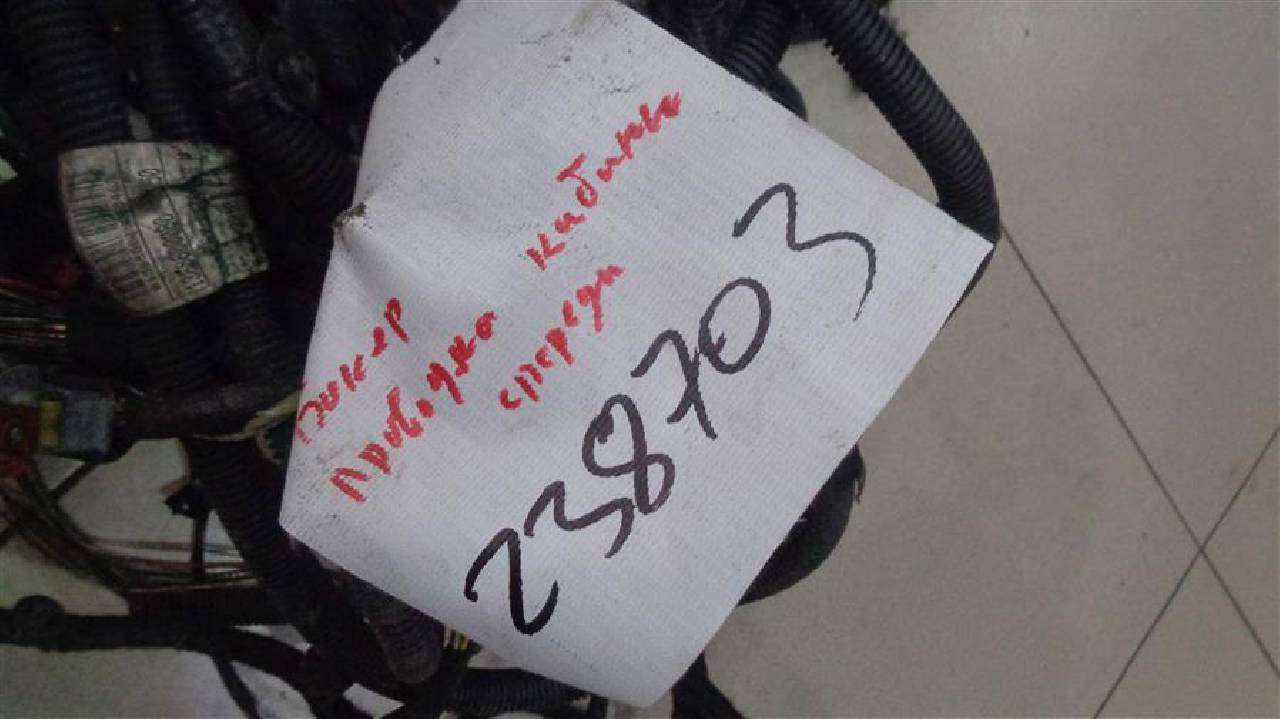 проводка кабины
спереди
238703